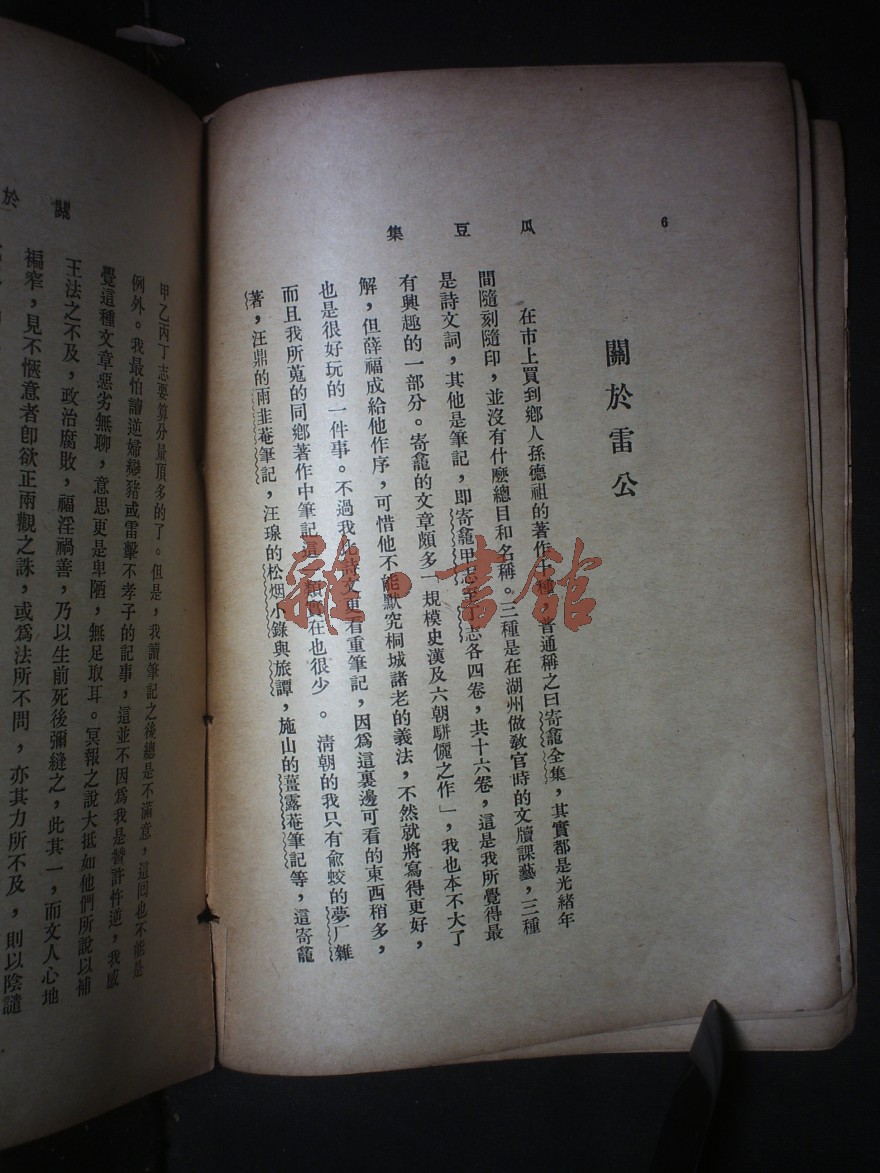 6
瓜豆集
關於雷公
在市上買到鄉人孫德祖的著作十種，普通稱之曰寄龕全集，其實都是光緒年
間隨刻隨印，並沒有什麼總目和名稱。三種是在湖州做教官時的文牘課藝，三種
是詩文詞，其他是筆記，即寄龕甲志至丁志各四卷，共十六卷，這是我所覺得最
有興趣的一部分。寄龕的文章頗多「規模史漢及六朝駢儷之作」，我也本不大了
解，但薛福成給他作序，可惜他不能默究桐城諸老的義法，不然就將寫得更好，
也是很好玩的一件事。不過我比詩文更看重筆記，因爲這裏邊可看的東西稍多，
而且我所蒐的同鄉著作中筆記這一類實在也很少。清朝的我只有俞蛟的夢厂雜
著，汪鼎的雨韭菴筆記，汪瑔的松烟小錄與旅譚，施山的薑露菴筆記等，這寄龕
關於
甲乙丙丁志要算分量頂多的了。但是，我讀筆記之後總是不滿意，這回也不能是
例外。我最怕讀逆婦變豬或雷擊不孝子的記事，這並不因爲我是贊許忤逆，我感
覺這種文章惡劣無聊，意思更是卑陋，無足取耳。冥報之說大抵如他們所說以補
王法之不及，政治腐敗，福淫禍善，乃以生前死後彌縫之，此其一，而文人心地
褊窄，見不愜意者即欲正兩觀之誅，或爲法所不問，亦其力所不及，則以陰譴
雜·書館